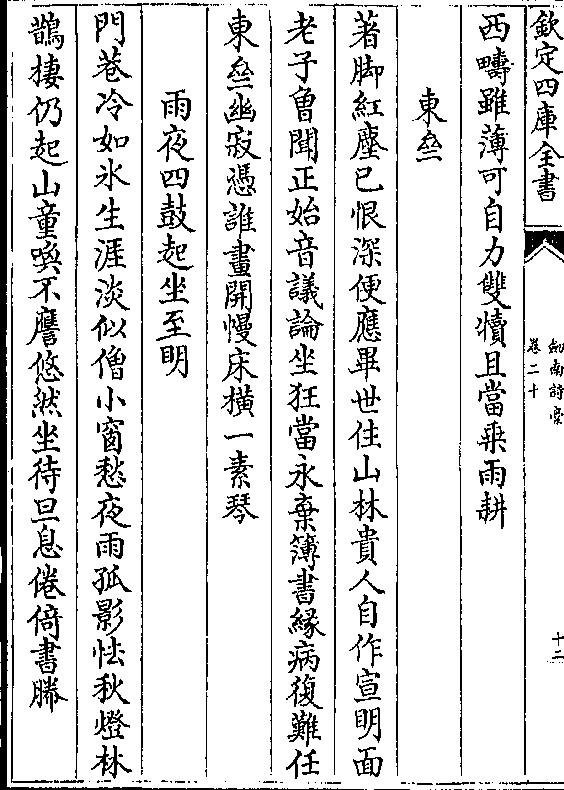 欽定四庫全書
劍南詩藁
卷二十
十二
西疇雖薄可自力雙犢且當乗雨耕
東㙓
著脚紅塵已恨深便應畢世住山林貴人自作宣明面
老子曾聞正始音議論坐狂當永棄簿書縁病復難任
東㙓幽寂憑誰畫開慢床橫一素琴
雨夜四鼓起坐至明
門巷冷如氷生涯淡似僧小窗愁夜雨孤影怯秋燈林
鵲棲仍起山童喚不譍悠然坐待旦息倦倚書㡇